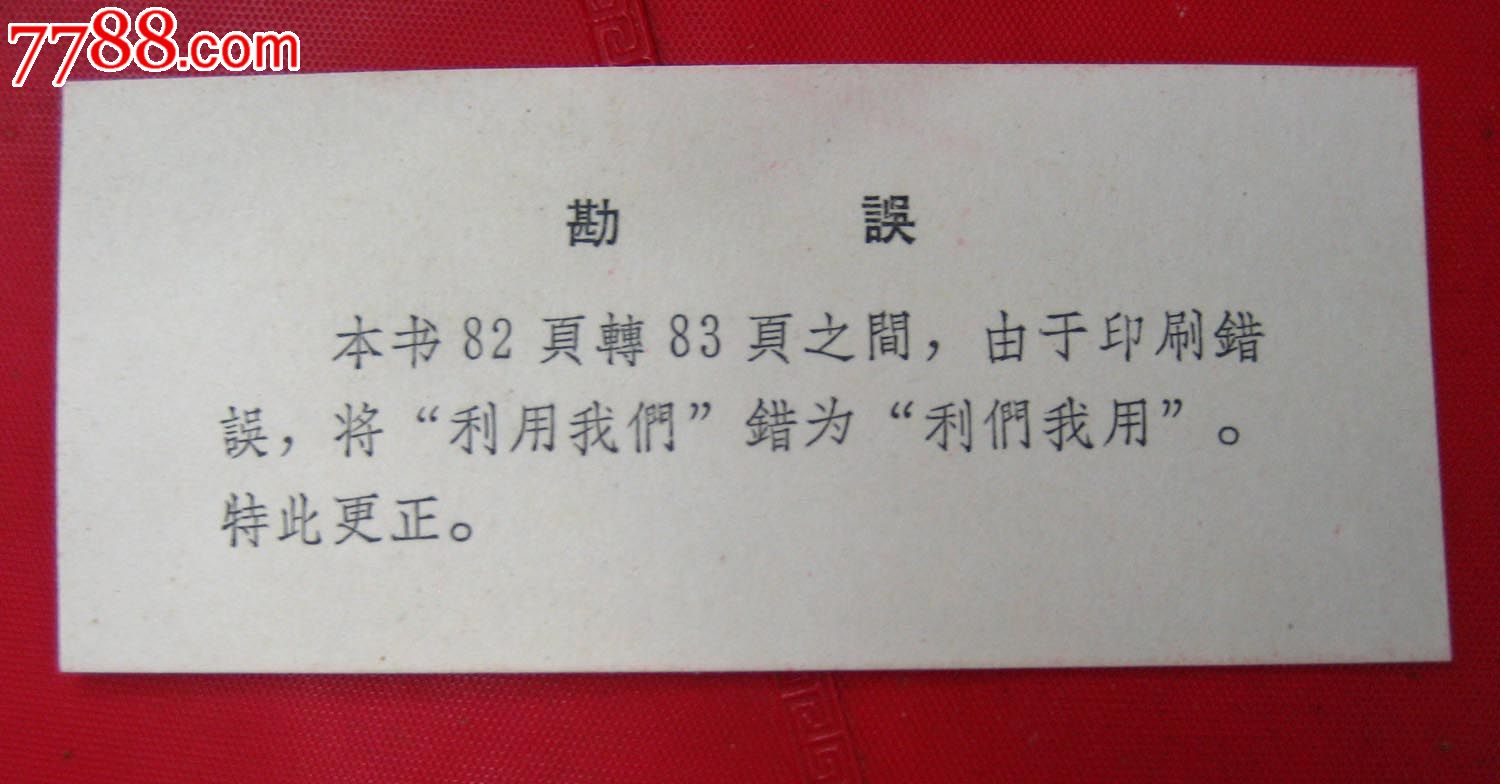 7788.com
勘 誤
本书82頁轉83頁之間，由于印刷錯
誤，将“利用我們”錯为“利們我用”。
特此更正。